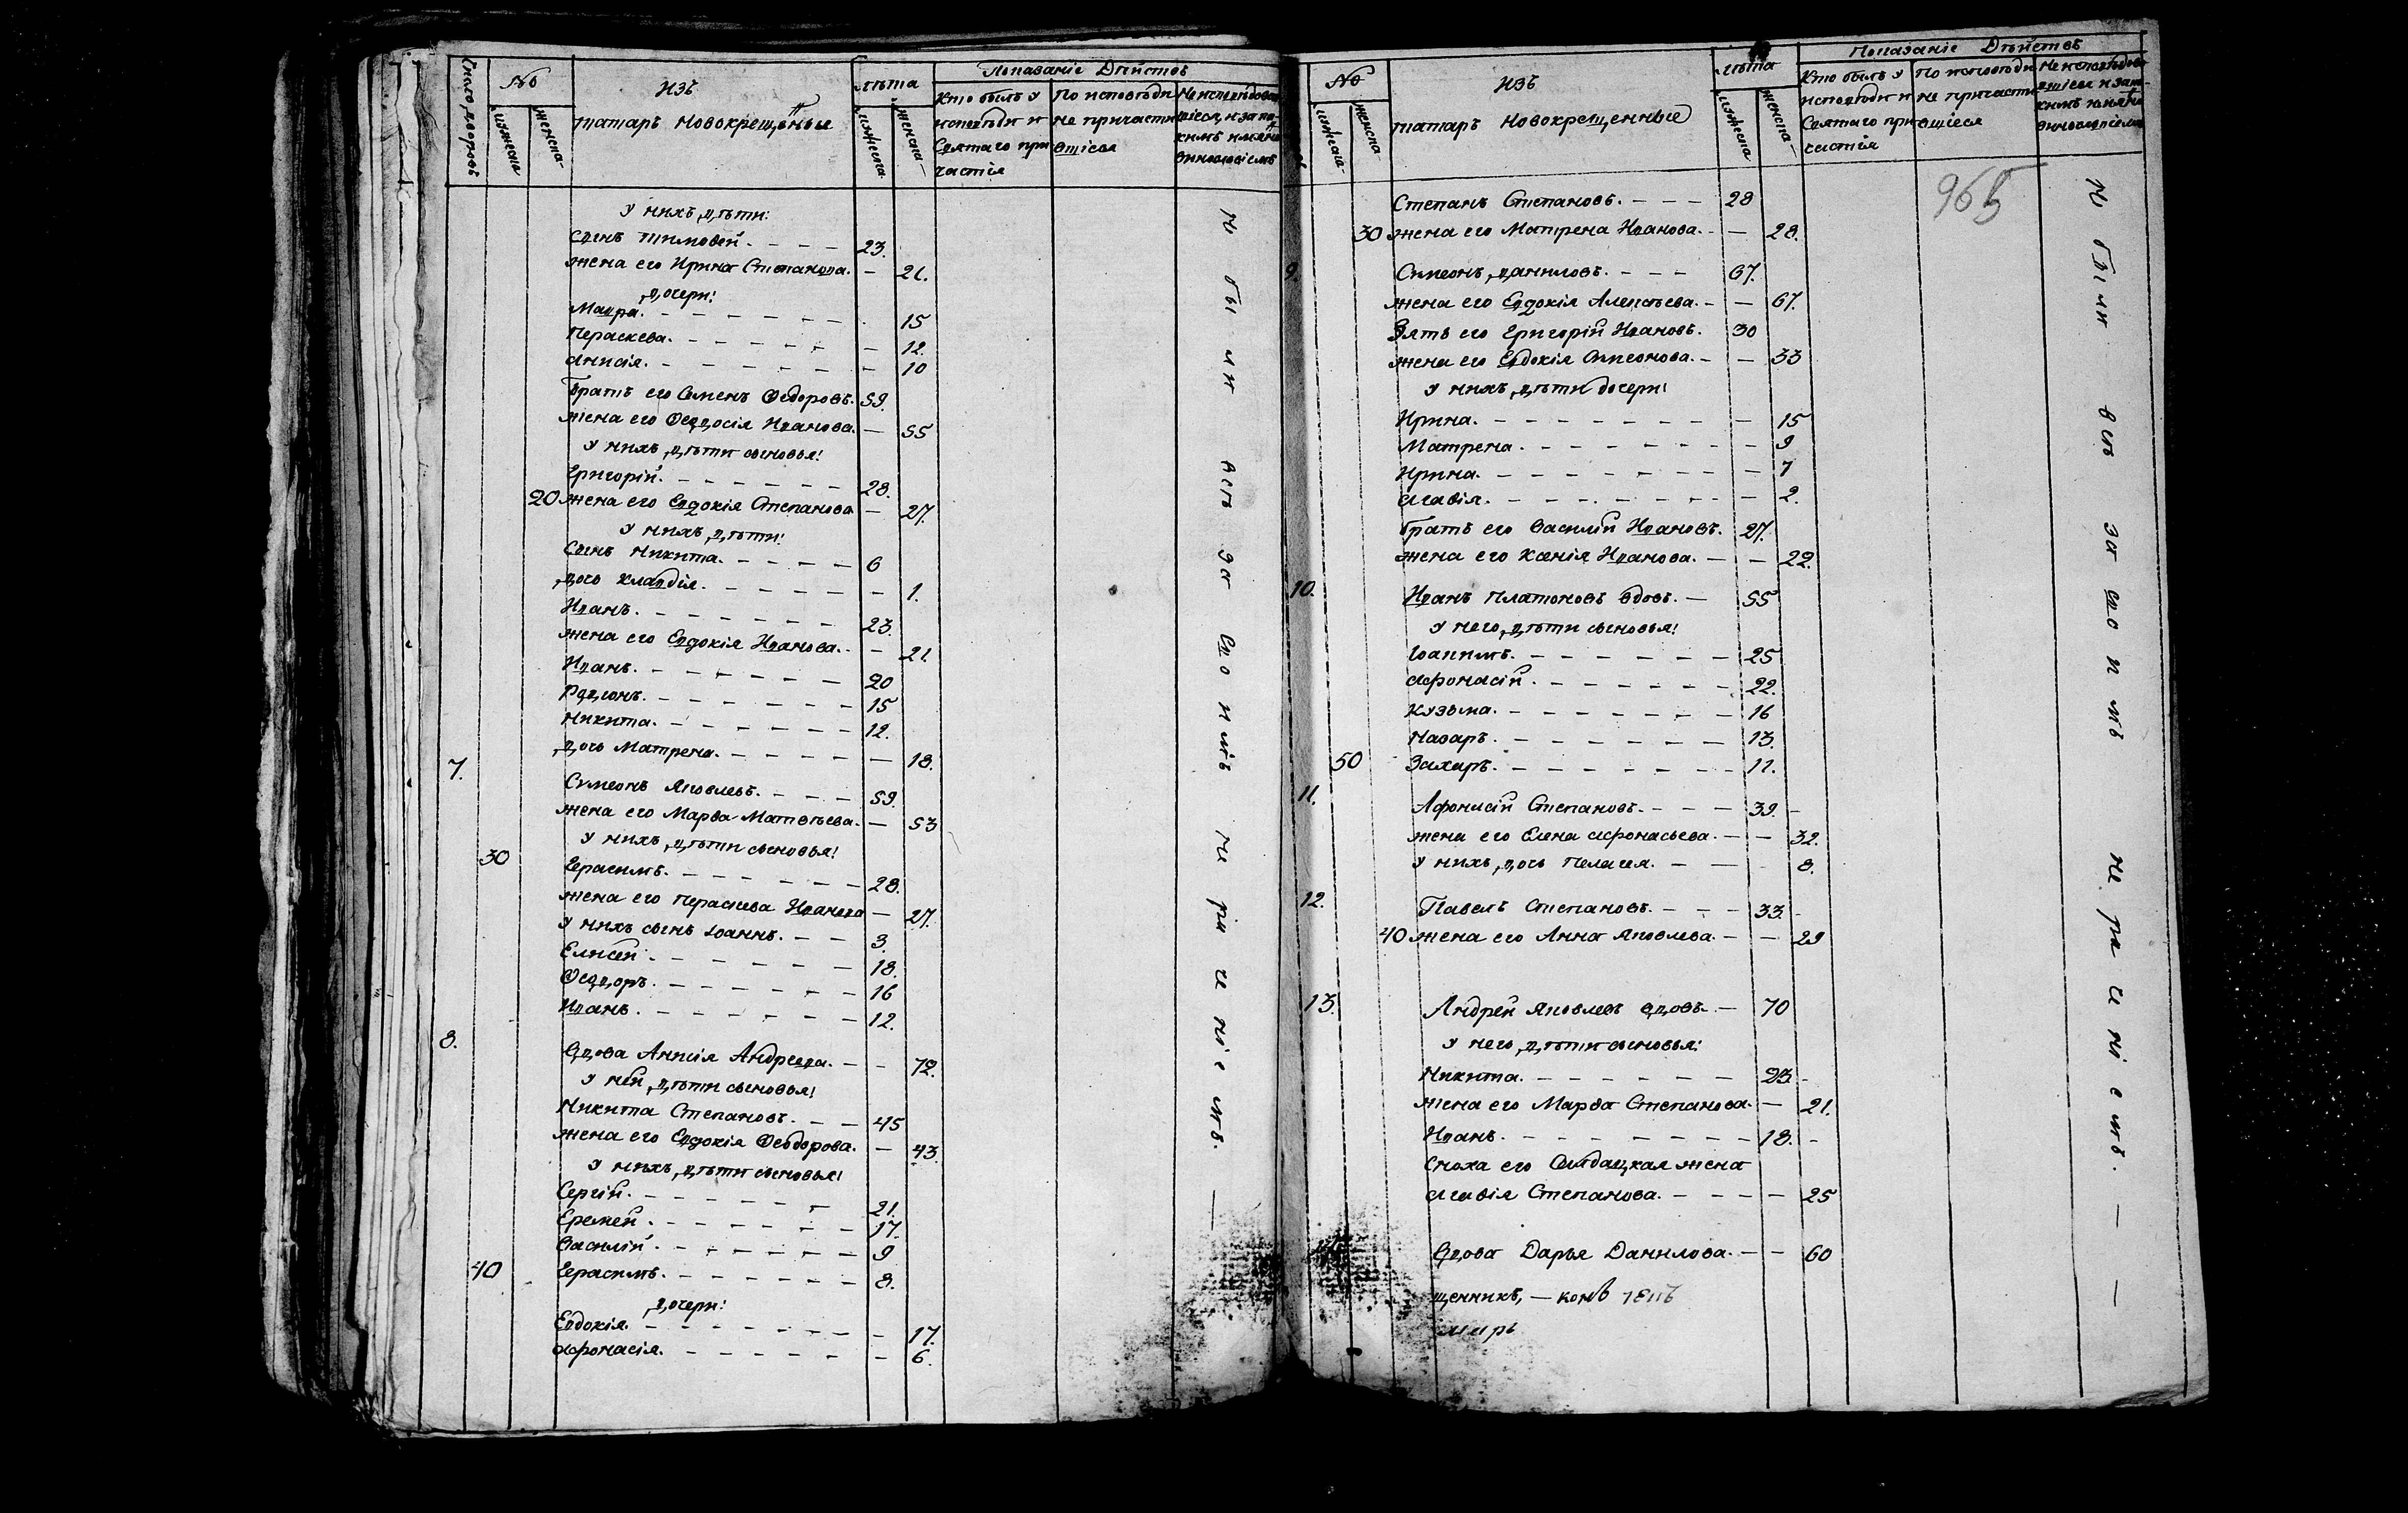 Число дворовъ
№
мужеска
женска
Изъ
татаръ новокрещенные
лѣта
мужеска
женска
Показаніе Дѣйствъ
Кто былъ у исповѣди и Святаго причастія
По исповѣди не причастившіеся
У нихъ дѣти:
сынъ Тимофей. 23.
жена его Ирина Степанова. 21.
дочери:
Мавра. 15
Пераскева. 12.
Анисія. 10
Братъ его Семенъ Ѳедоровъ. 59.
жена его Ѳеодосія Иванова. 55
У нихъ дѣти сыновья:
Григорій. 28.
20 жена его Евдокія Степанова 27.
У нихъ дѣти:
Сынъ Никита. 6
дочь Клавдія. 1.
Иванъ. 23.
жена его Евдокія Иванова. 21.
Иванъ. 20
Родіонъ. 15
Никита. 12.
дочь Матрена. 18.
7. Симеонъ Яковлевъ. 59.
жена его Марѳа Матвѣева. 53
У нихъ дѣти сыновья:
30 Герасимъ. 28.
жена его Пераскева Иванова 27.
У нихъ сынъ Іоаннъ. 3.
Елисей. 18.
Ѳеодоръ. 16
Иванъ. 12.
8. Вдова Анисія Андреева. 72.
У ней дѣти сыновья:
Никита Степановъ. 45
жена его Евдокія Ѳеодорова. 43.
У нихъ дѣти сыновья:
Сергій. 21.
Еремей. 17.
Василій. 9
40 Герасимъ. 8.
дочери:
Евдокія. 17.
Афонасія. 6.
Не были все за своимъ нераченіемъ.
№
мужеска
женска
Изъ
татаръ новокрещенные
лѣта
мужеска
женска
Показаніе Дѣйствъ
Кто былъ у исповѣди и Святаго причастія
По исповѣди не причастившіеся
965
Степанъ Степановъ. 28
30 жена его Матрена Иванова. 28.
9. Симеонъ Даниловъ. 67.
жена его Евдокія Алексѣева. 67.
Зять его Григорій Ивановъ. 30
жена его Евдокія Симеонова. 33
У нихъ дѣти дочери:
Ирина. 15
Матрена. 9
Ирина. 7
Агафія. 2.
Братъ его Василій Ивановъ. 27.
жена его Ксенія Иванова. 22.
10. Иванъ Платоновъ вдовъ. 55
У него дѣти сыновья:
Іоакимъ. 25
Афонасій. 22.
Кузьма. 16
Назаръ. 13.
50 Захаръ. 11.
11. Афонасій Степановъ. 39.
жена его Елена Афонасьева. 32.
У нихъ дочь Пелагея. 8.
12. Павелъ Степановъ. 33.
40 жена его Анна Яковлева. 29
13. Андрей Яковлевъ вдовъ. 70
У него дѣти сыновья:
Никита. 23.
жена его Марѳа Степанова. 21.
Иванъ. 18.
Сноха его Солдацкая жена
Агафія Степанова. 25
Вдова Дарья Данилова. 60
щенникъ,
Не были все за своимъ нераченіемъ.